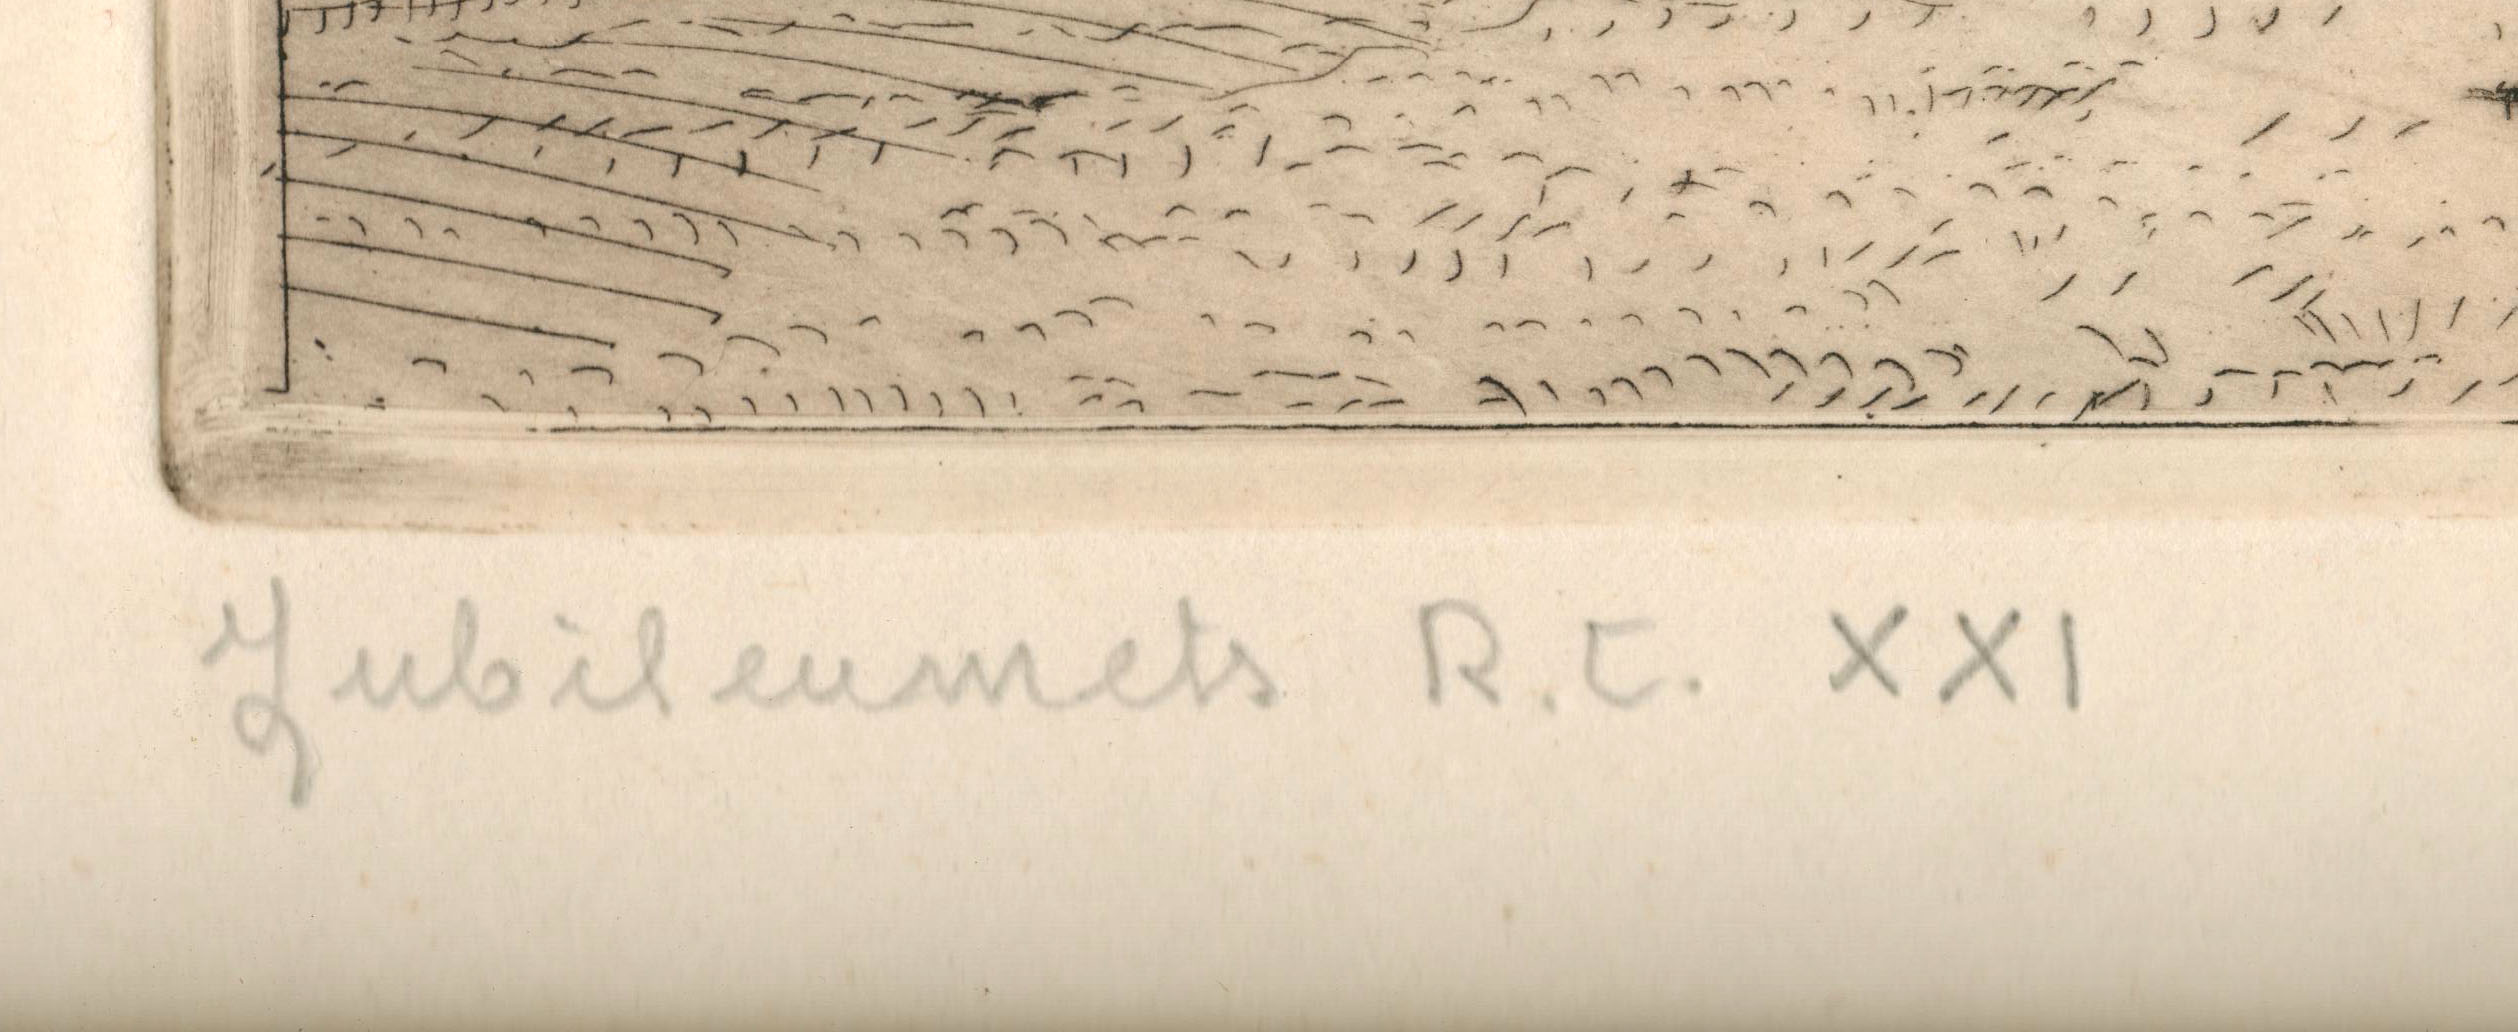 Jubileumets R.T. XXI